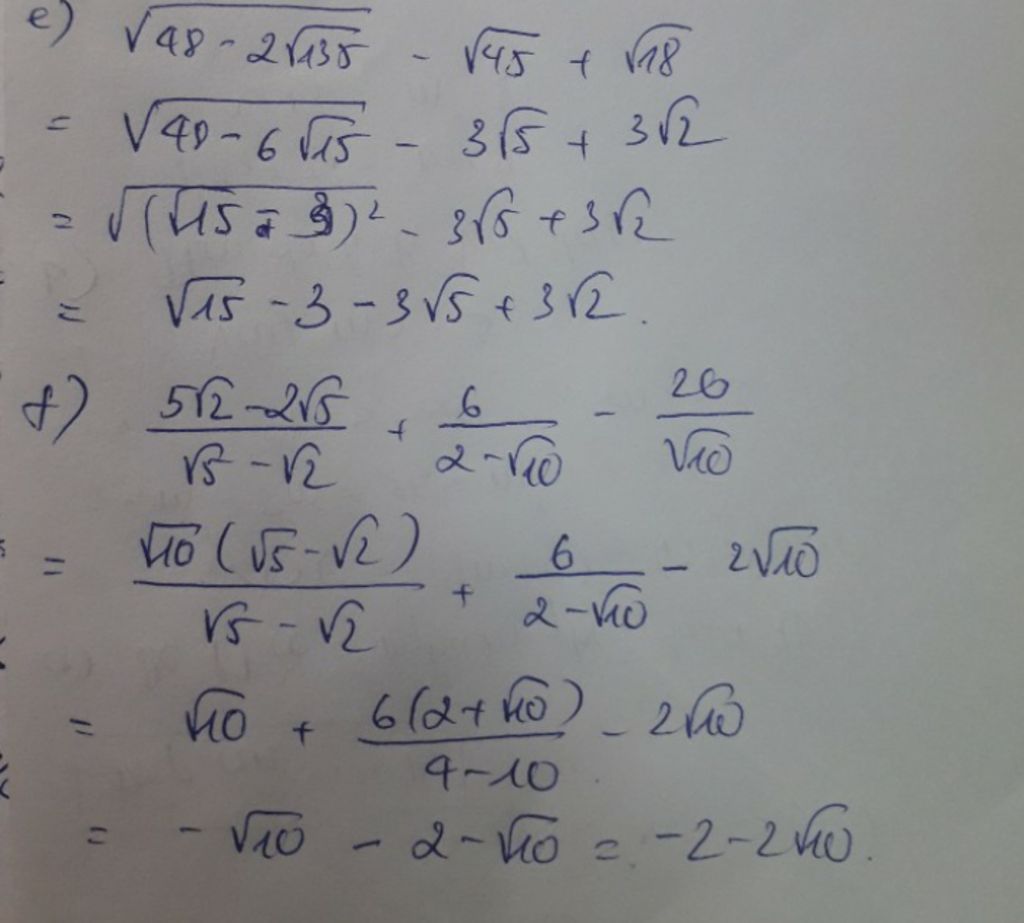 e) √(48 - 2√135) - √45 + √18
= √(48 - 6√15) - 3√5 + 3√2
= √((√15 - 3)²) - 3√5 + 3√2
= √15 - 3 - 3√5 + 3√2.
f) (5√2 - 2√5)/(√5 - √2) + 6/(2 - √10) - 20/√10
= (√10(√5 - √2))/(√5 - √2) + 6/(2 - √10) - 2√10
= √10 + (6(2 + √10))/(4 - 10) - 2√10
= - √10 - 2 - √10 = -2 - 2√10.